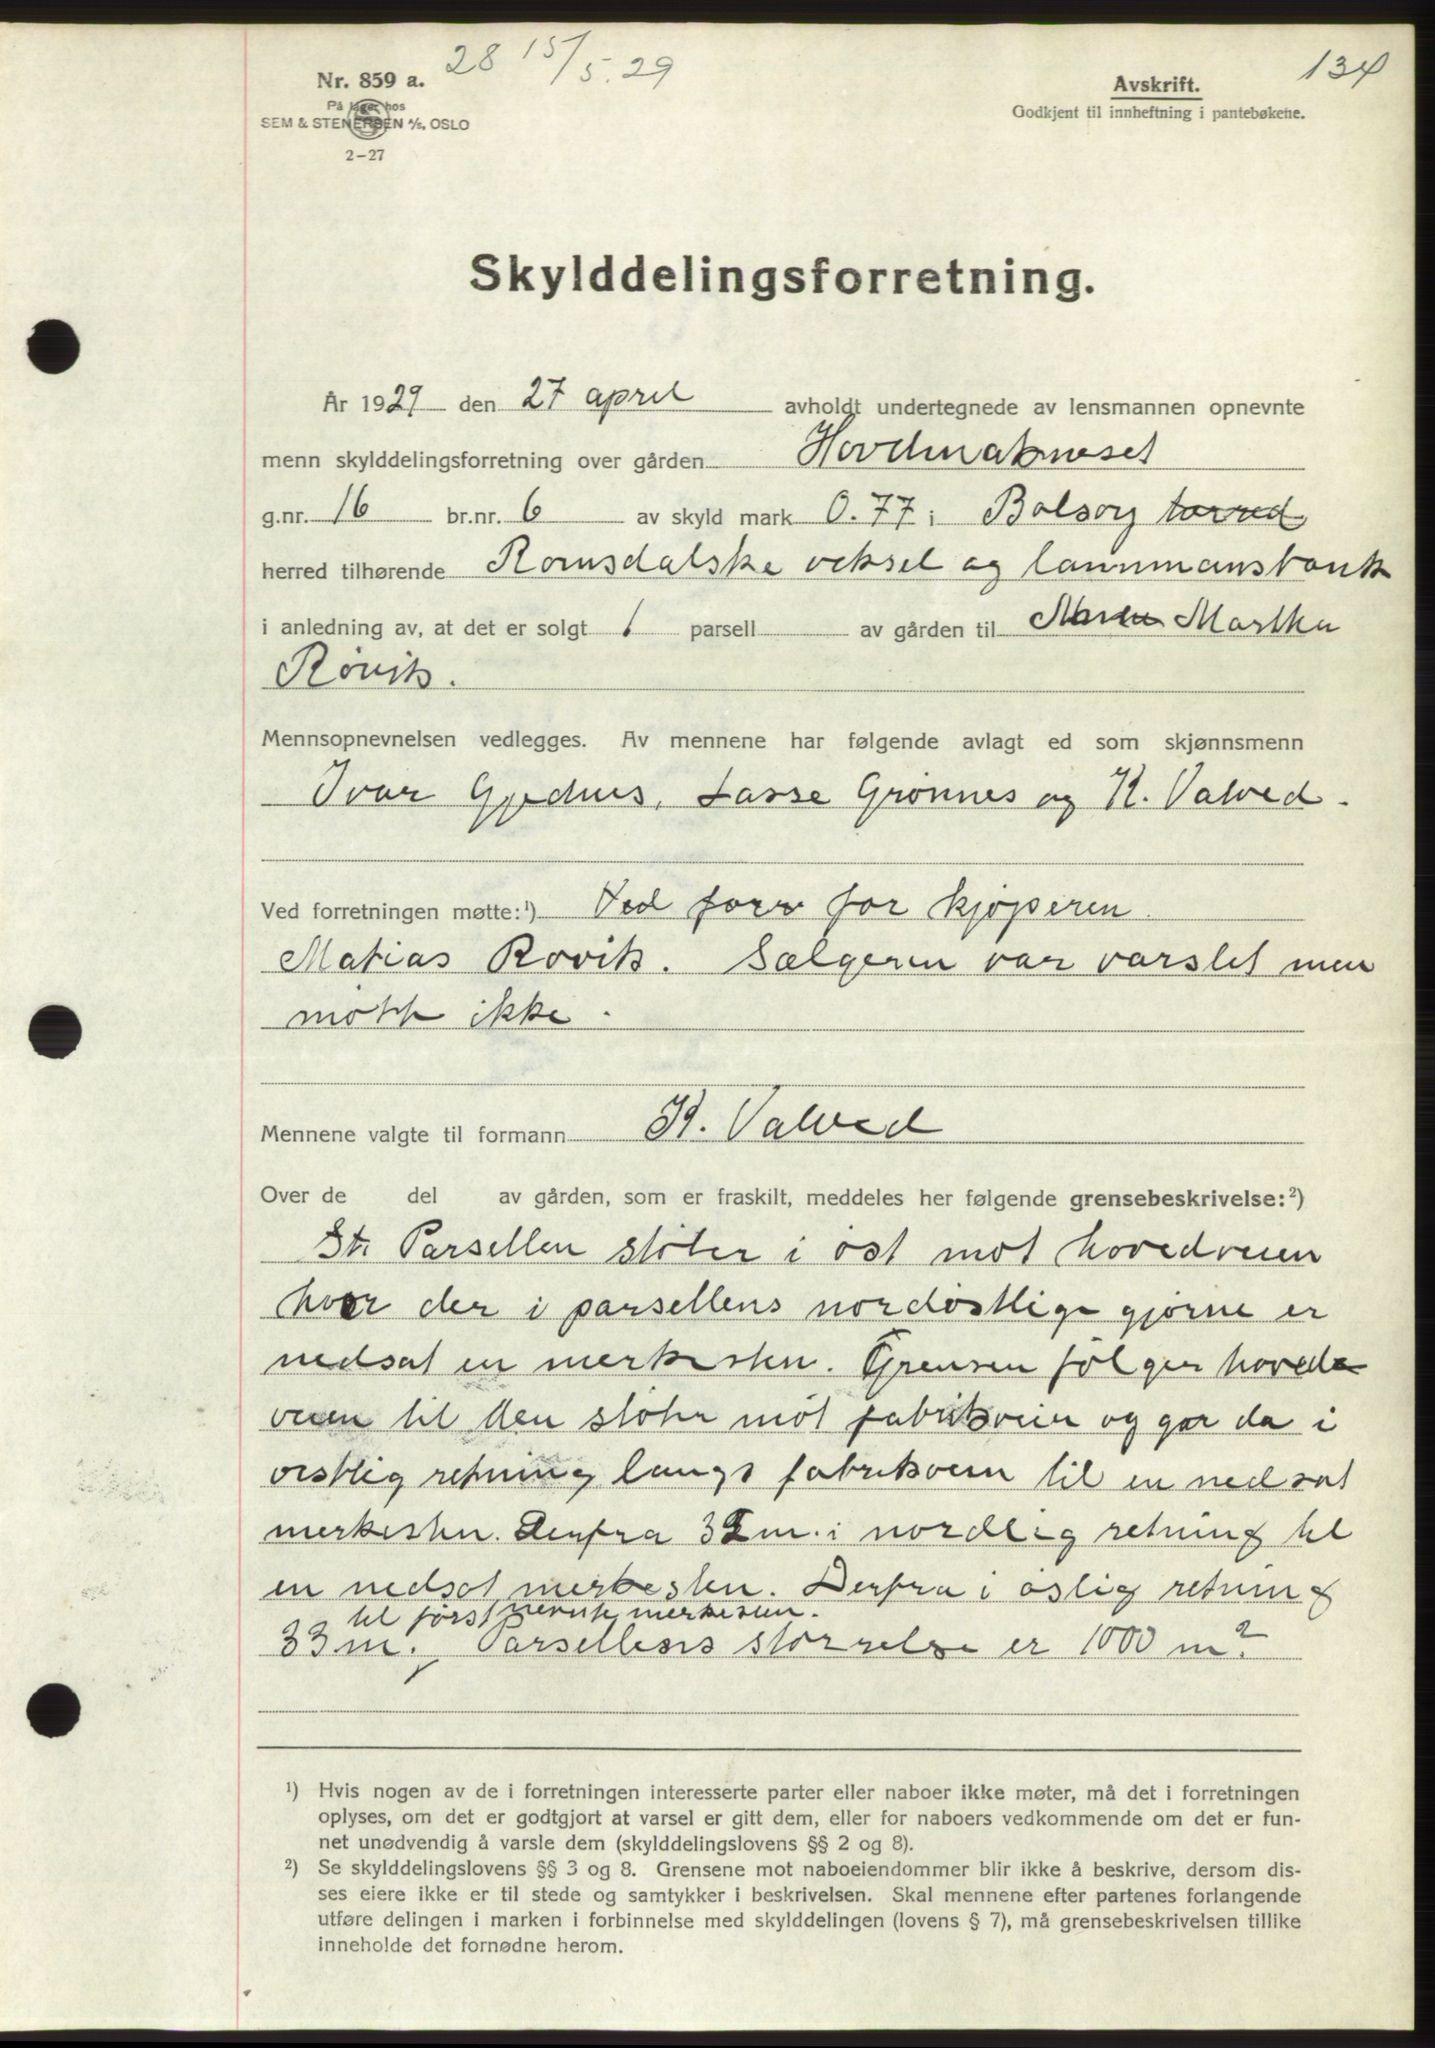 28 15/5.29
134
Nr. 859 a.
På lager hos
SEM & STENERSEN A/S, OSLO
2-27
Avskrift.
Godkjent til innheftning i pantebøkene.
Skylddelingsforretning.
År 1929 den 27 april avholdt undertegnede av lensmannen opnevnte
menn skylddelingsforretning over gården
g.nr. 16 br.nr. 6 av skyld mark 0.77 i Bolsøy
herred tilhørende Romsdalske veksel og
i anledning av, at det er solgt 1 parsell av gården til Martha
Røvik.
Mennsopnevnelsen vedlegges. Av mennene har følgende avlagt ed som skjønnsmenn
Ivar Gjednes, Lasse Grønnes og K. Valved.
Ved forretningen møtte:¹) Ved forr for kjøperen
Matias Røvik. Sælgeren var varslet men
møtte ikke.
Mennene valgte til formann K. Valved
Over de del av gården, som er fraskilt, meddeles her følgende grensebeskrivelse:²)
Parsellen støter i øst mot hovedveien
hvor der i parsellens nordøstlige hjørne er
nedsat en merkesten. Grensen følger hoved
veien til den støter mot fabrikveien og gar da i
vestlig retning langs fabrikveien til en nedsat
merkesten. Derfra m. i nordlig retning til
en nedsat merkesten. Derfra i østlig retning
til først nevnte merkesten.
33 m. Parsellens størrelse er 1000 m².
¹) Hvis nogen av de i forretningen interesserte parter eller naboer ikke møter, må det i forretningen
oplyses, om det er godtgjort at varsel er gitt dem, eller for naboers vedkommende om det er fun-
net unødvendig å varsle dem (skylddelingslovens §§ 2 og 8).
²) Se skylddelingslovens §§ 3 og 8. Grensene mot naboeiendommer blir ikke å beskrive, dersom dis-
ses eiere ikke er til stede og samtykker i beskrivelsen. Skal mennene efter partenes forlangende
utføre delingen i marken i forbinnelse med skylddelingen (lovens § 7), må grensebeskrivelsen tillike
inneholde det fornødne herom.